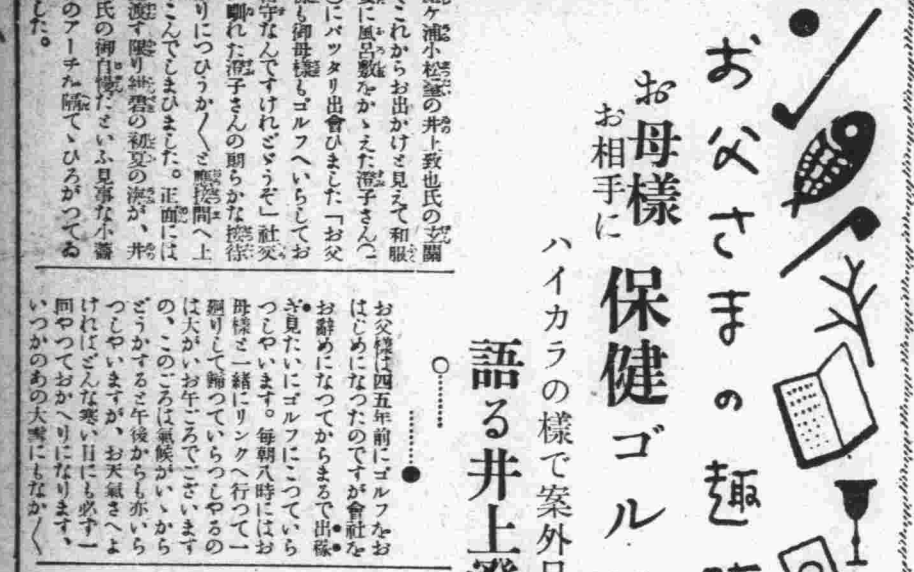 お父さまの趣
お母様
お相手に
保健ゴル
ハイカラの樣で案外
語る井上
ケ浦小松の井上致也氏の玄關
これからお出かけと見えて和服
に風呂敷をかゝえた澄子さん
にバッタリ出會ひました「お父
も御母樣もゴルフへいらしてお
守なんですけれどどうぞ」社交
馴れた澄子さんの朗らかな接待
りにつひうか〱と應接間へ上
こんでしまひました。正面には
渡す限り紺碧の初夏の海が、井
氏の御自慢だといふ見事な小薔
のアーチを隔てゝひろがつてゐ
した。
お父樣は四五年前にゴルフをお
はじめになつたのですが會社を
お辭めになつてからまるで出稼
ぎ見たいにゴルフにこつていら
つしやいます。每朝八時にはお
母樣と一緖にリンクへ行つて一
廻りして歸つていらつしやるの
は大がいお午ごろでございます
の、このごろは氣候がいゝから
どうかすると午後からも亦いら
つしやいますが、お天氣さへよ
ければどんな寒い日にも必ず一
回やつておかへりになります、
いつかのあの大雪にもなか〱